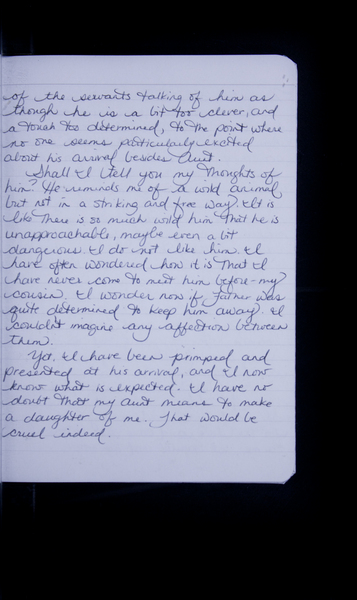 of the servants talking of him as
though he is a bit too clever, and
a touch too determined, to the point where
no one seems particularly excited
about his arrival besides Aunt.
Shall I tell you my thoughts of
him? He reminds me of a wild animal
but not in a striking and free way. It is
like there is so much wild him that he is
unapproachable, maybe even a bit
dangerous. I do not like him. I
have often wondered how it is that I
have never come to meet him before - my
cousin. I wonder now if Father was
quite determined to keep him away. I
couldn't imagine any affection between
them.
Yet, I have been primped and
presented at his arrival, and I now
know what is expected. I have no
doubt that my aunt means to make
a daughter of me. That would be
cruel indeed.